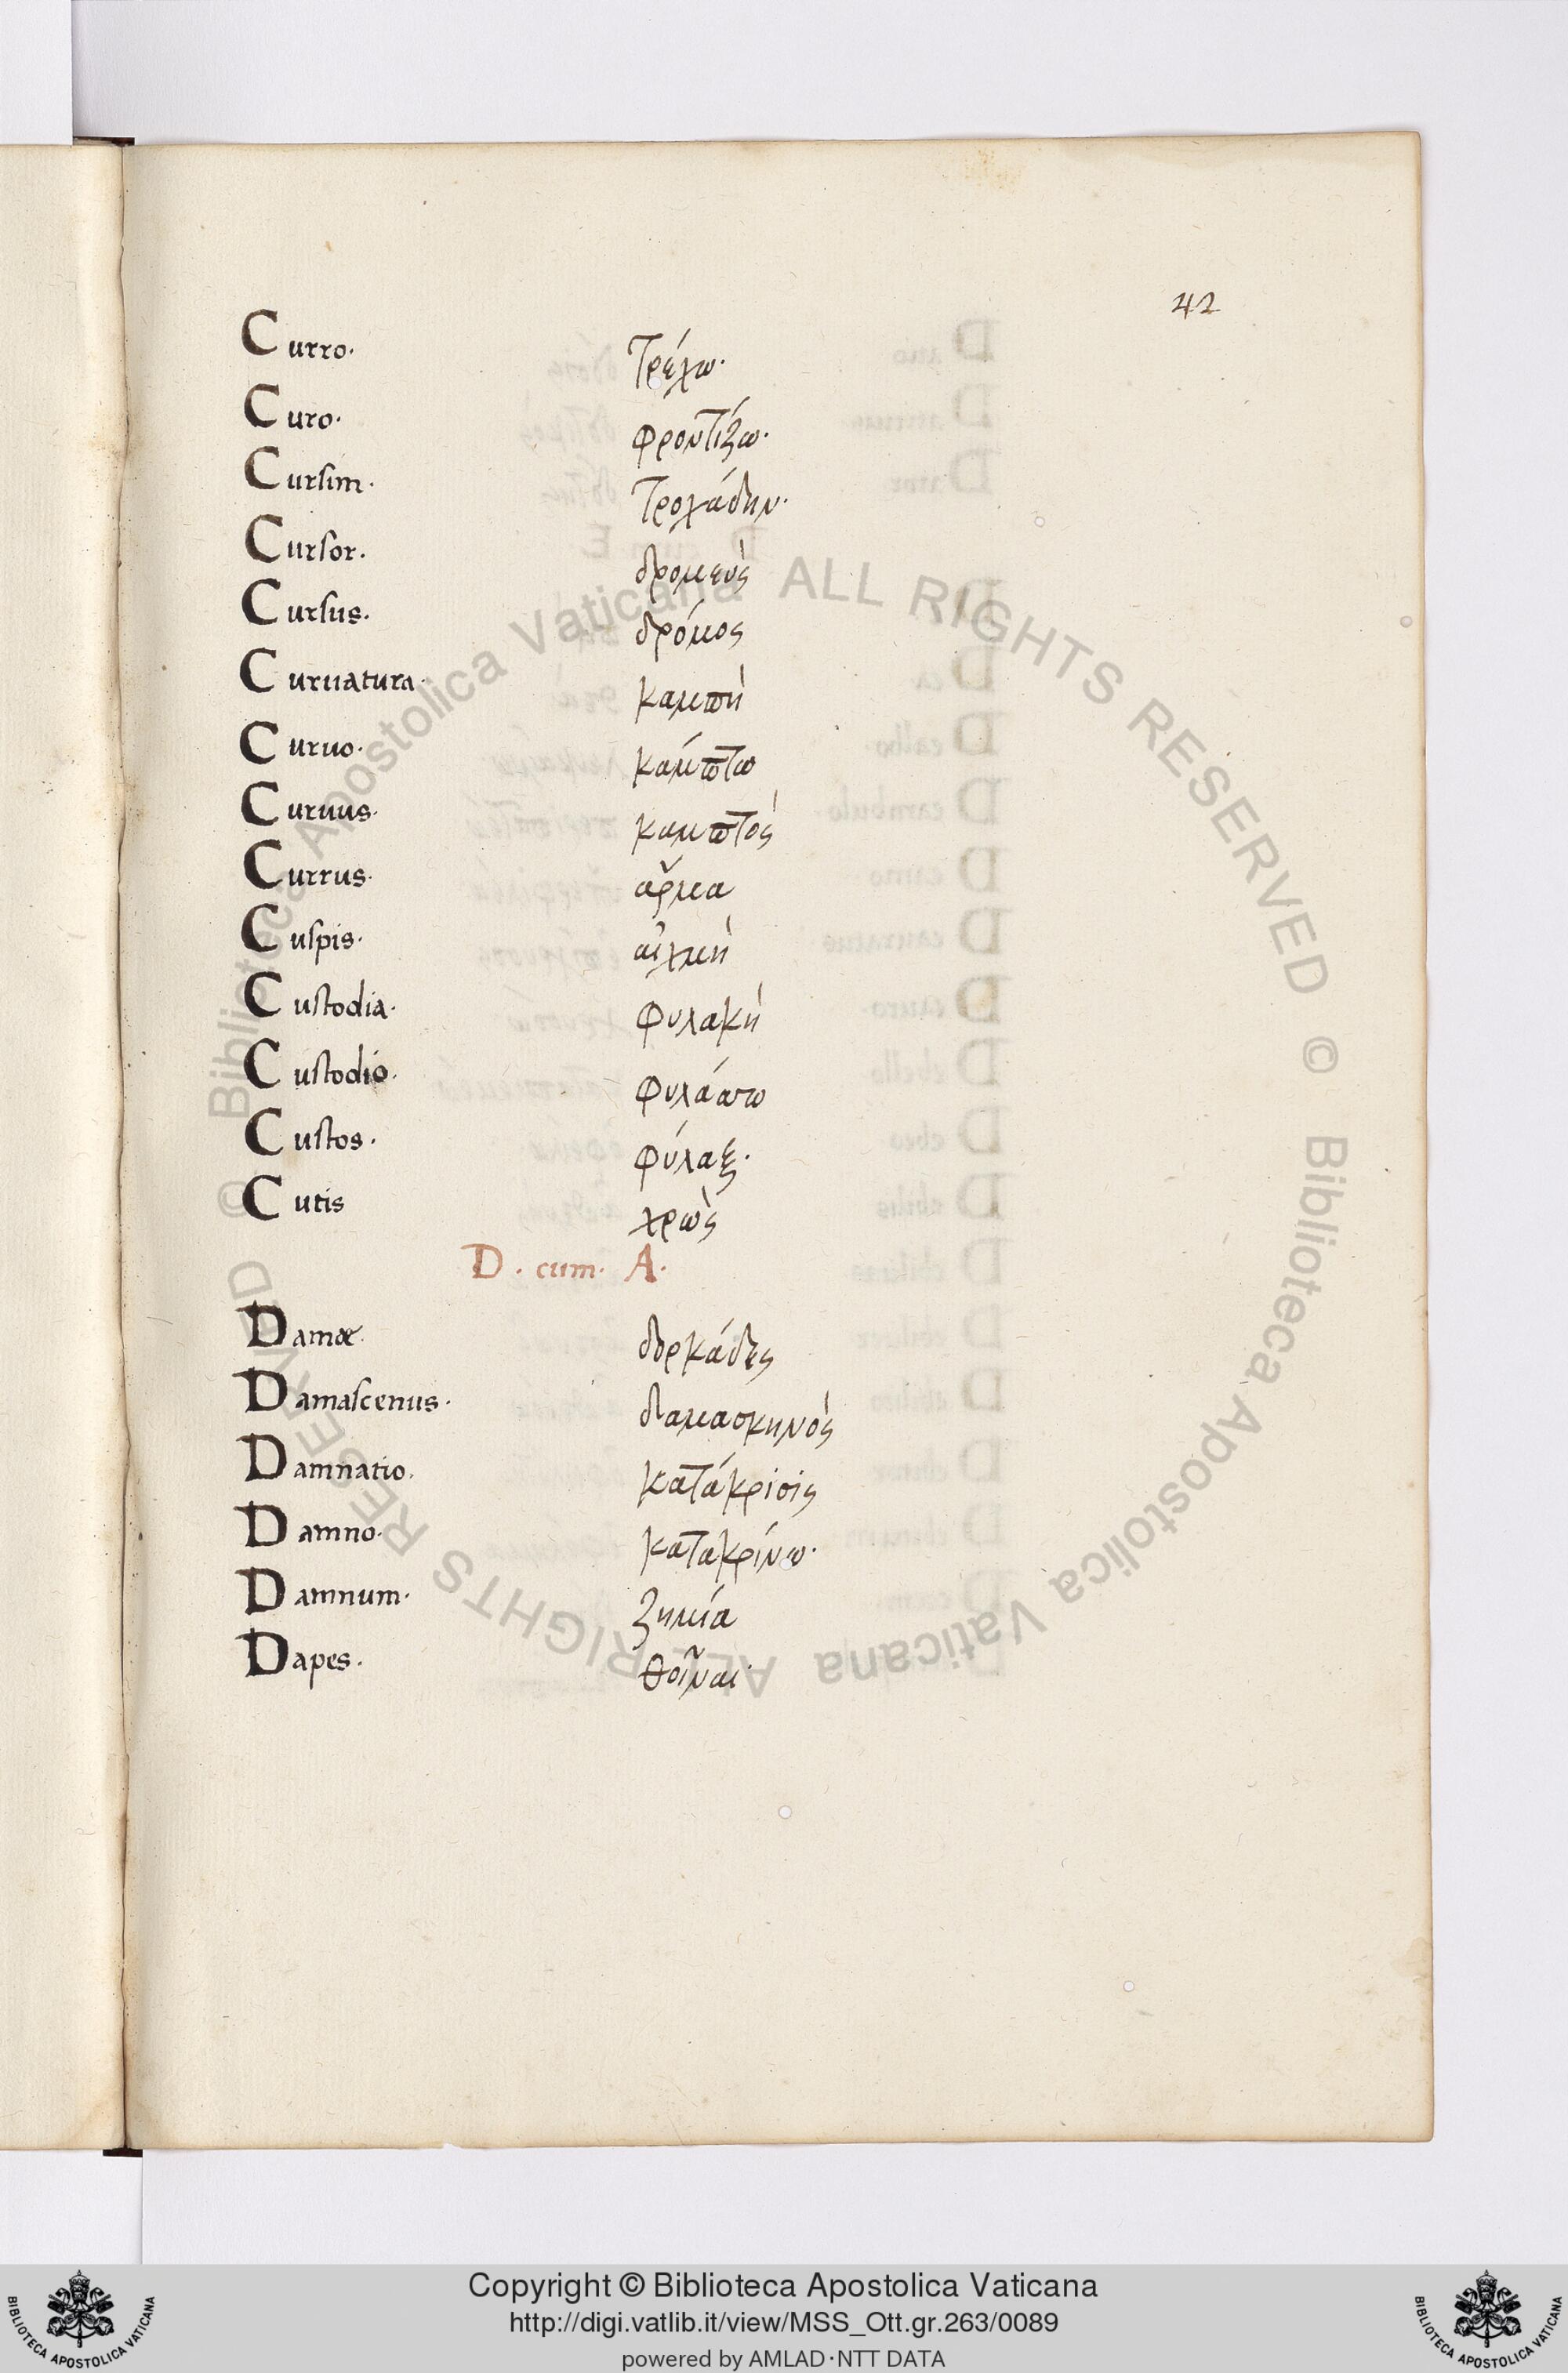 42
Curro. τρέχω.
Curo. φροντίζω.
Cursim. τροχάδην.
Cursor. δρομεὺς
Cursus. δρόμος
Curuatura. καμπὴ
Curuo. κάμπτω
Curuus. καμπτὸς
Currus. ἅρμα
Cuspis. αἰχμὴ
Custodia. φυλακὴ
Custodio. φυλάττω
Custos. φύλαξ.
Cutis χρὼς
D. cum. A.
Damæ δορκάδες
Damascenus. δαμασκηνὸς
Damnatio. κατάκρισις
Damno. κατακρίνω.
Damnum. ζημία
Dapes. θοῖναι
© Biblioteca Apostolica Vaticana ALL RIGHTS RESERVED © Biblioteca Apostolica Vaticana ALL RIGHTS RESERVED
Copyright © Biblioteca Apostolica Vaticana
http://digi.vatlib.it/view/MSS_Ott.gr.263/0089
powered by AMLAD·NTT DATA
BIBLIOTECA APOSTOLICA VATICANA
BIBLIOTECA APOSTOLICA VATICANA